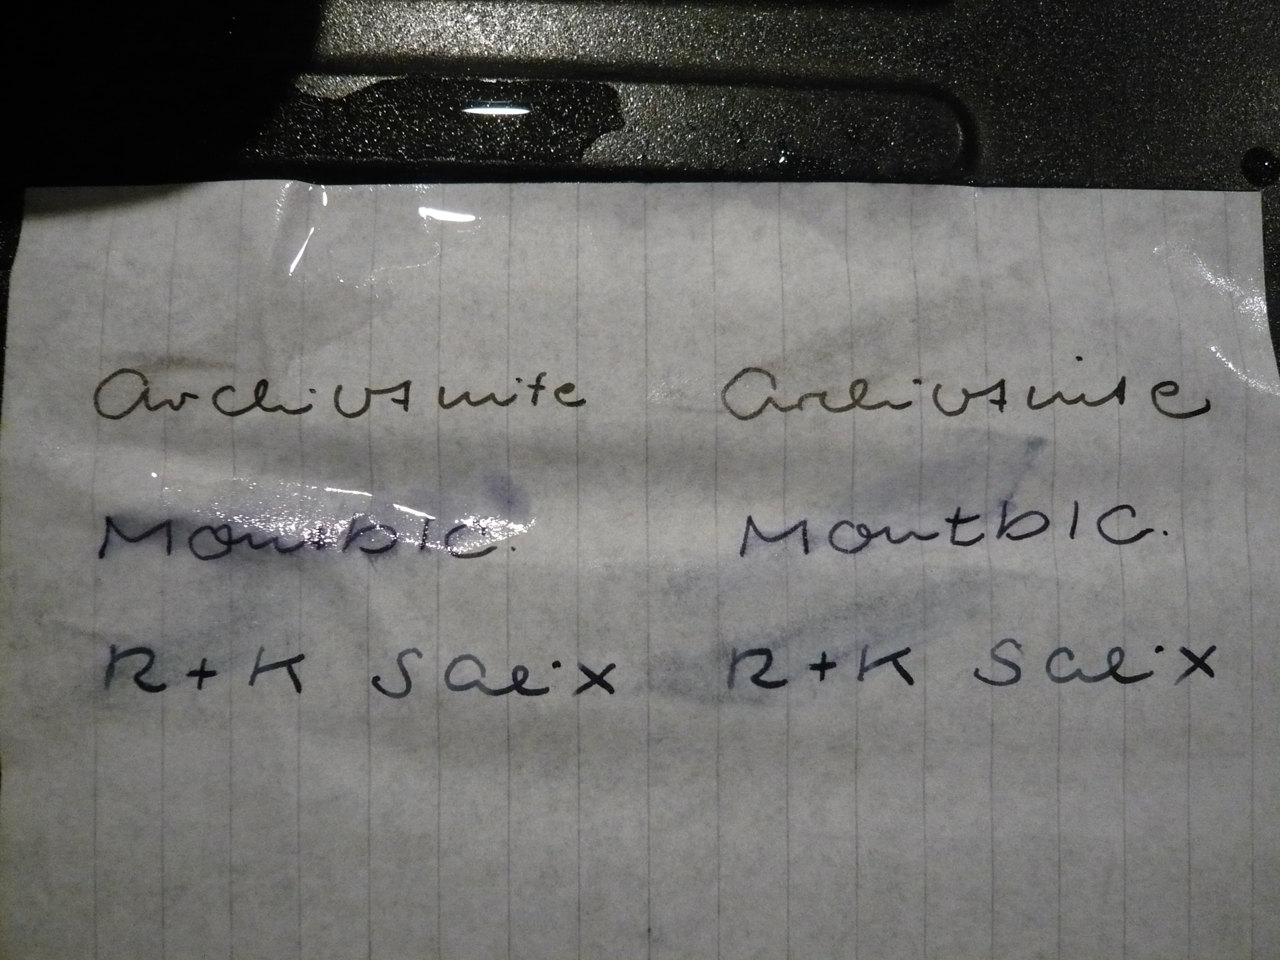 Archivtinte Archivtinte
Montblc. Montblc.
R+K Salix R+K Salix